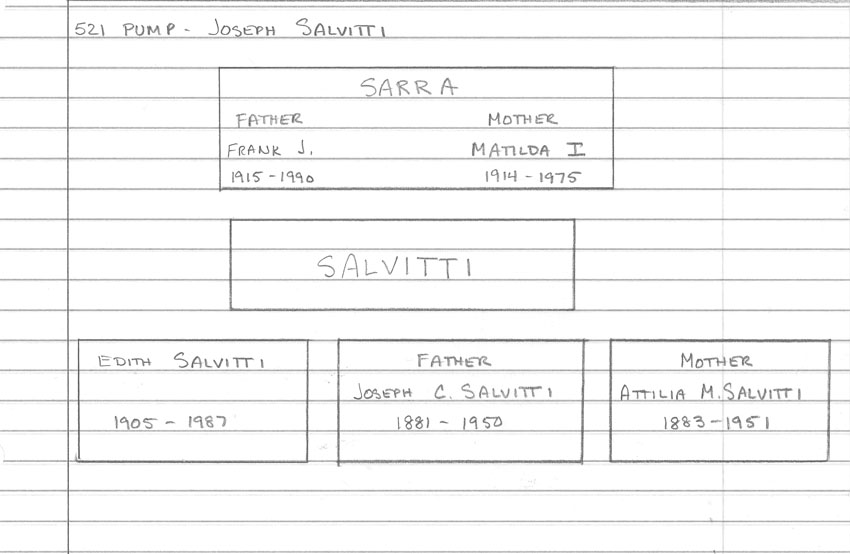 521 PUMP - JOSEPH SALVITTI
SARRA
FATHER MOTHER
FRANK J. MATILDA I
1915 - 1990 1914 - 1975
SALVITTI
EDITH SALVITTI FATHER MOTHER
JOSEPH C. SALVITTI ATTILIA M. SALVITTI
1905 - 1987 1881 - 1950 1883 - 1951